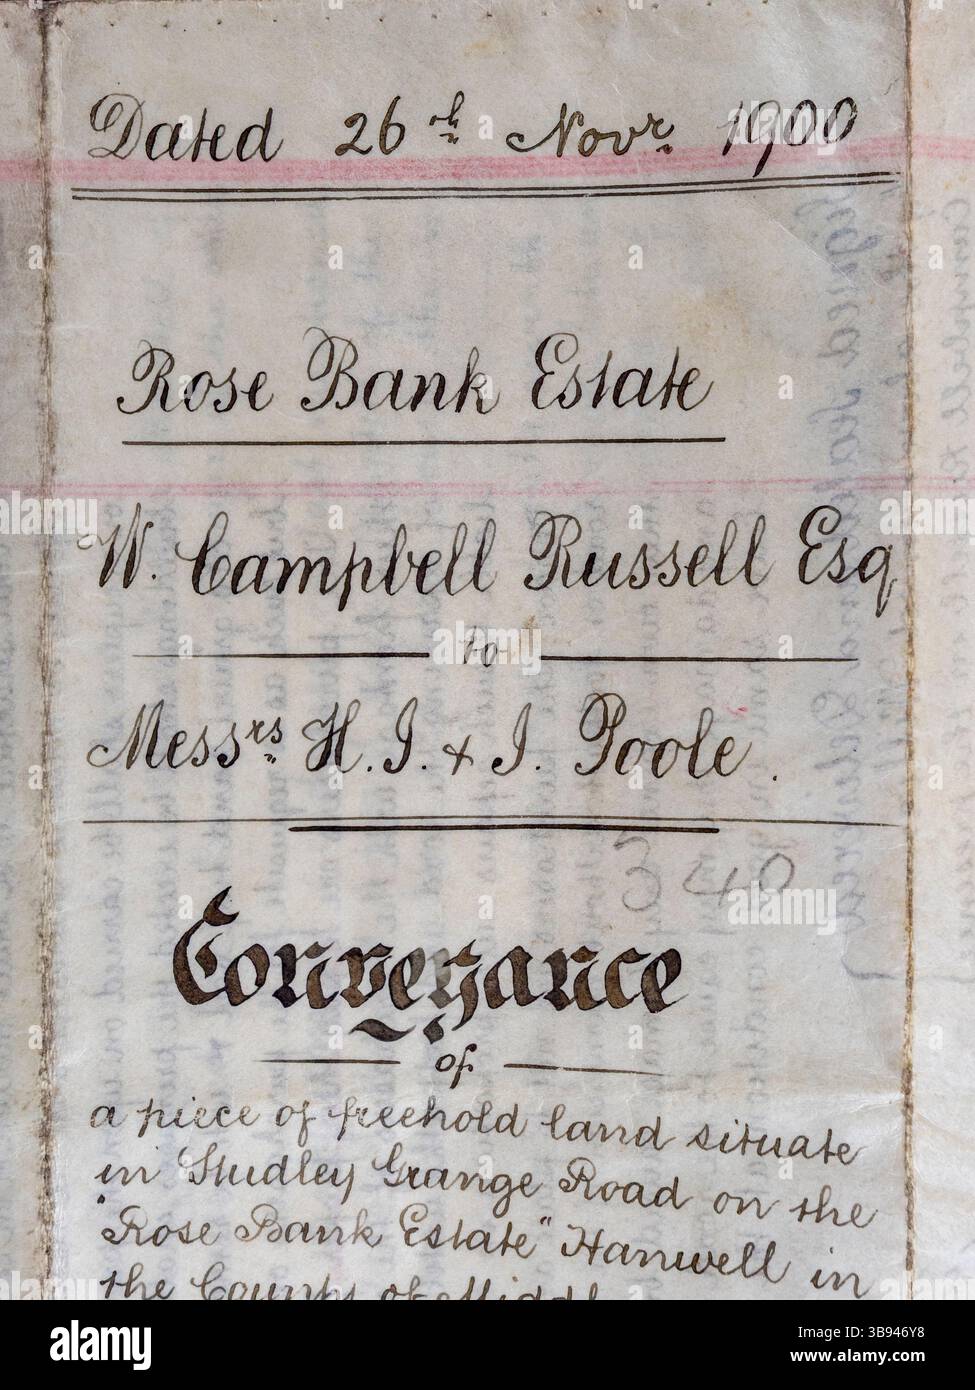 Dated 26th Novr 1900
Rose Bank Estate
W. Campbell Russell Esq
to
Messrs H. J. & J. Poole.
340
Conveyance
of
a piece of freehold land situate
in Studley Grange Road on the
"Rose Bank Estate" Hanwell in
the County of
alamy
Image ID: 3B946Y8
www.alamy.com